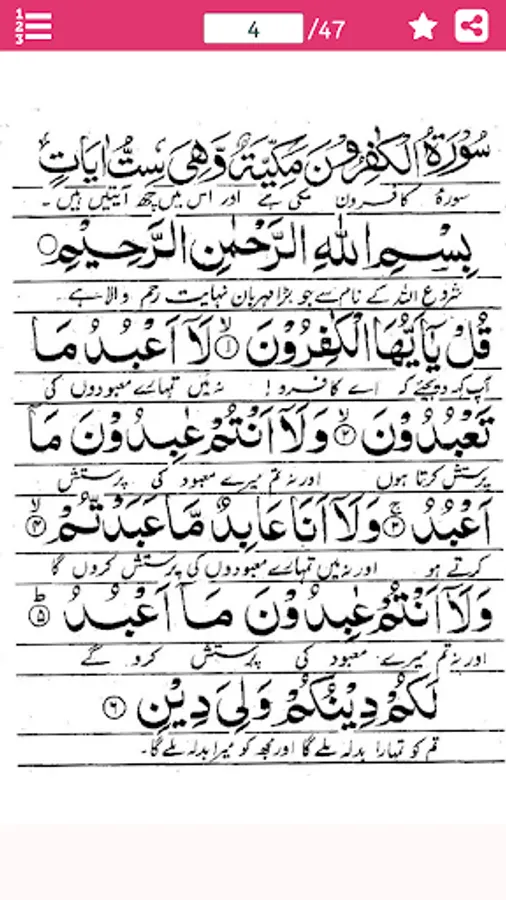 1 2 3
4 /47
سُوْرَةُ الْكٰفِرُوْنَ مَكِّيَّةٌ وَّهِيَ سِتُّ اٰيَاتٍ
سورۂ کافرون مکی ہے اور اس میں چھ آیتیں ہیں ۔
بِسْمِ اللّٰهِ الرَّحْمٰنِ الرَّحِيْمِ
شروع اللہ کے نام سے جو بڑا مہربان نہایت رحم والا ہے ۔
قُلْ يٰۤاَيُّهَا الْكٰفِرُوْنَ ۙ﴿۱﴾ لَاۤ اَعْبُدُ مَا
آپ کہہ دیجئے کہ اے کافرو! نہ میں تمہارے معبودوں کی
تَعْبُدُوْنَ ۙ﴿۲﴾ وَلَاۤ اَنْتُمْ عٰبِدُوْنَ مَاۤ
پرستش کرتا ہوں اور نہ تم میرے معبود کی پرستش
اَعْبُدُ ۚ﴿۳﴾ وَلَاۤ اَنَا عَابِدٌ مَّا عَبَدْتُّمْ ۙ﴿۴﴾
کرتے ہو اور نہ میں تمہارے معبودوں کی پرستش کروں گا
وَلَاۤ اَنْتُمْ عٰبِدُوْنَ مَاۤ اَعْبُدُ ؕ﴿۵﴾
اور نہ تم میرے معبود کی پرستش کرو گے
لَكُمْ دِيْنُكُمْ وَلِيَ دِيْنِ ﴿۶﴾
تم کو تمہارا بدلہ ملے گا اور مجھ کو میرا بدلہ ملے گا ۔